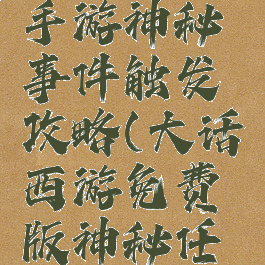 手游神秘
事件触发
攻略(大话
西游免费
版神秘任